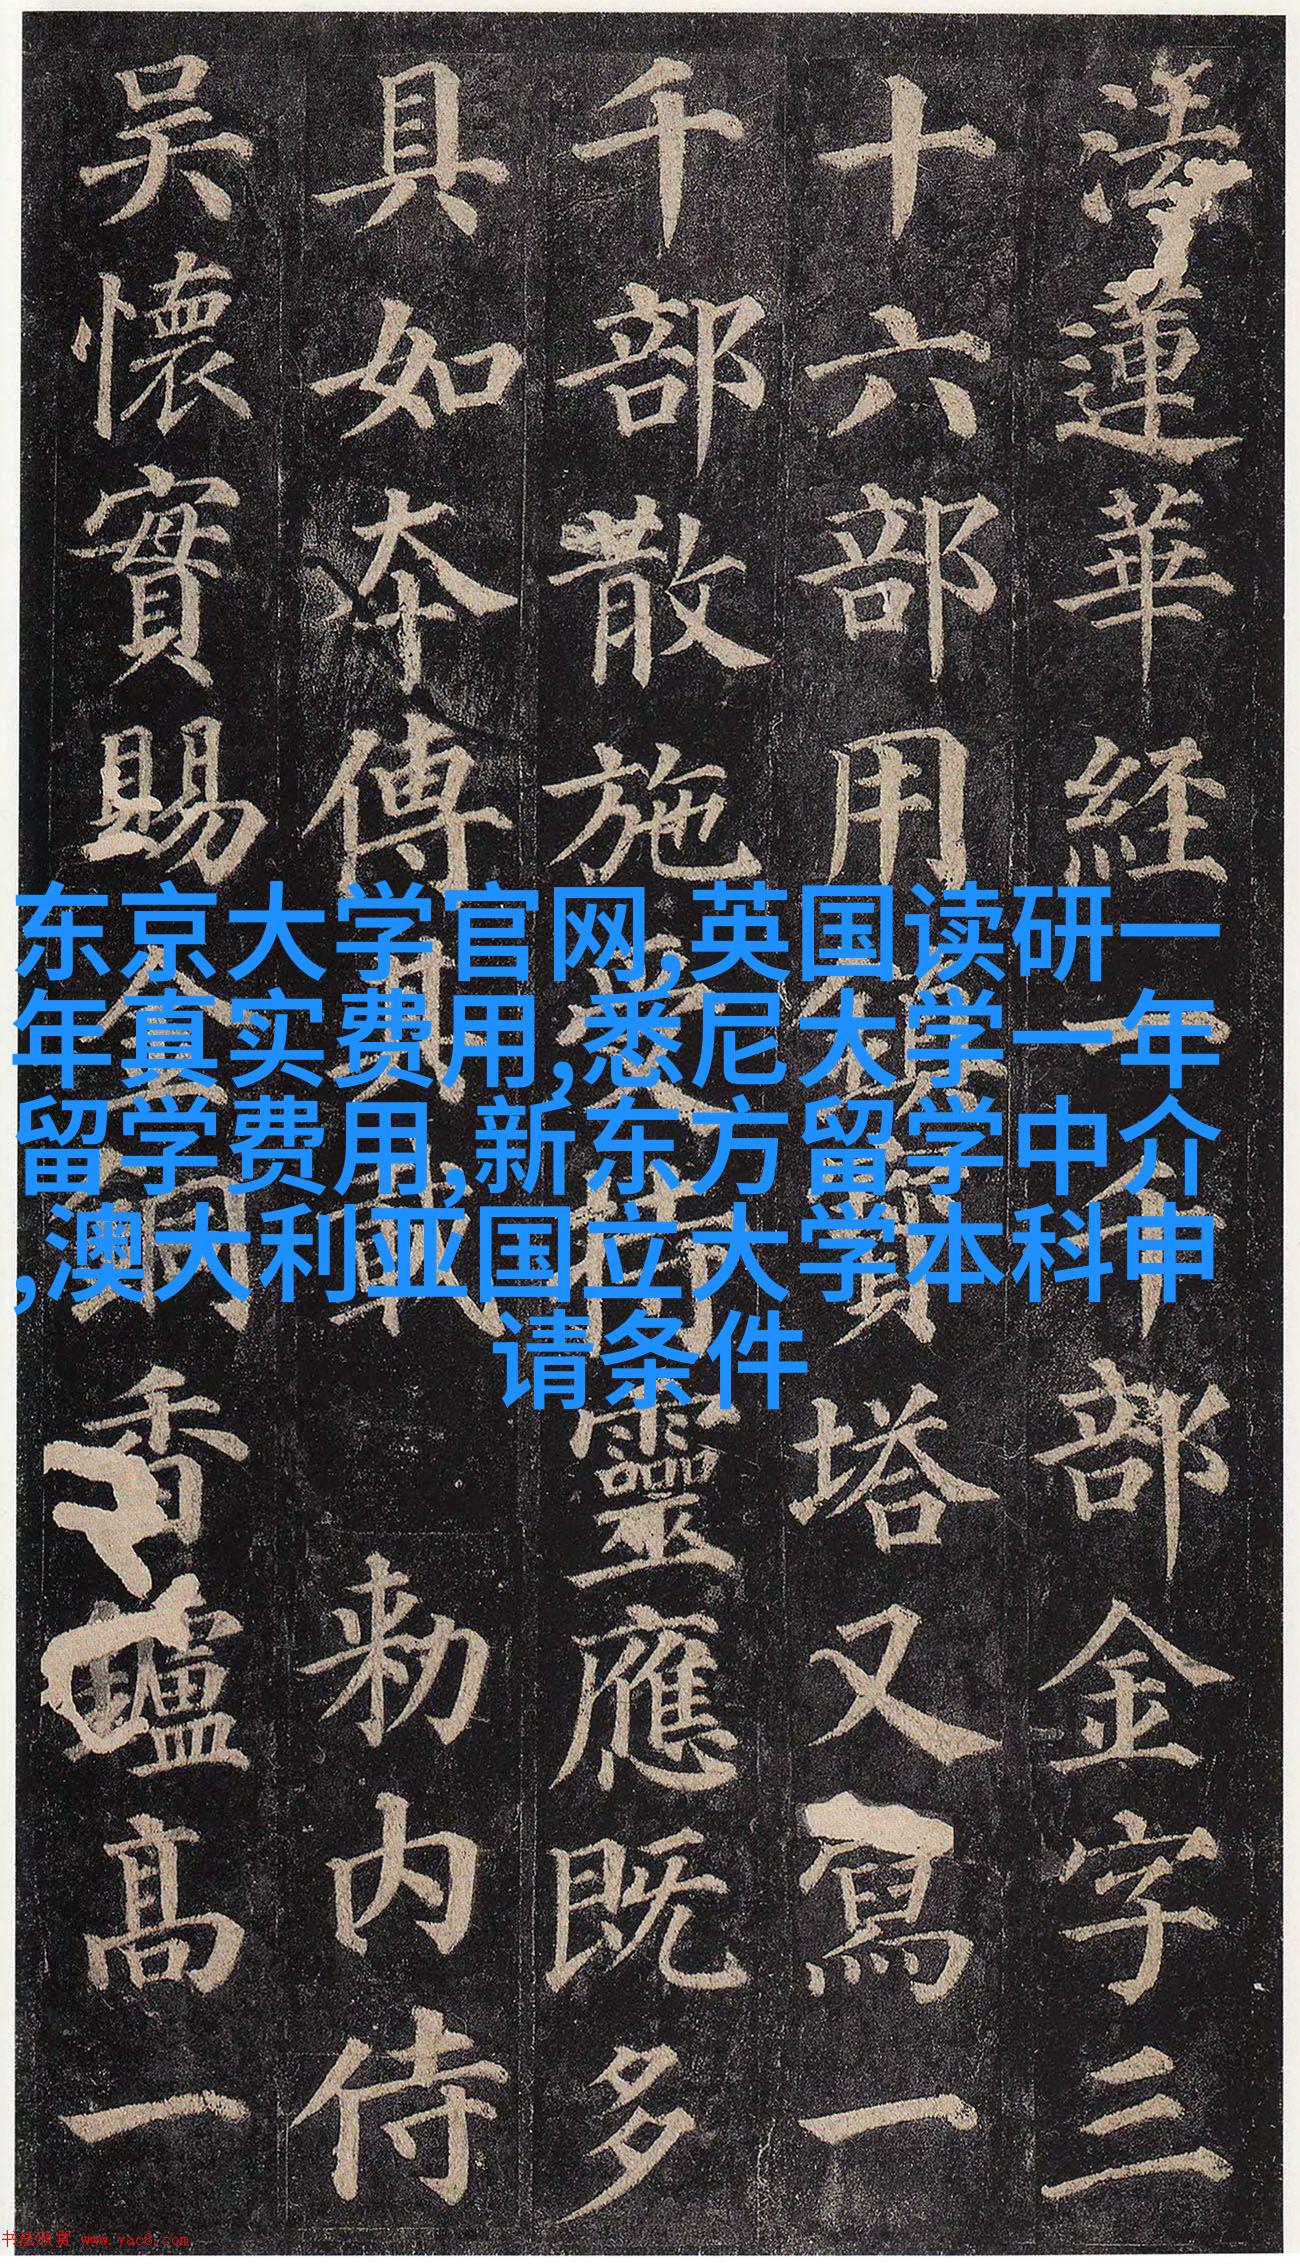 法蓮華経一千部金字三
十六部用鎮寶塔又寫一
千部散施受持靈應既多
具如本傳其載 勅内侍
吳懷實賜金銅香鑪高一
东京大学官网,英国读研一
年真实费用,悉尼大学一年
留学费用,新东方留学中介
,澳大利亚国立大学本科申
请条件
书法欣赏 www.yac8.com